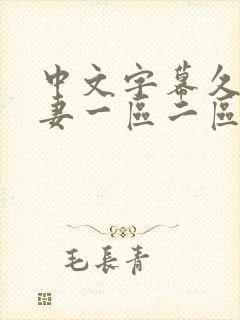 中文字幕久
妻一區二區
毛長青